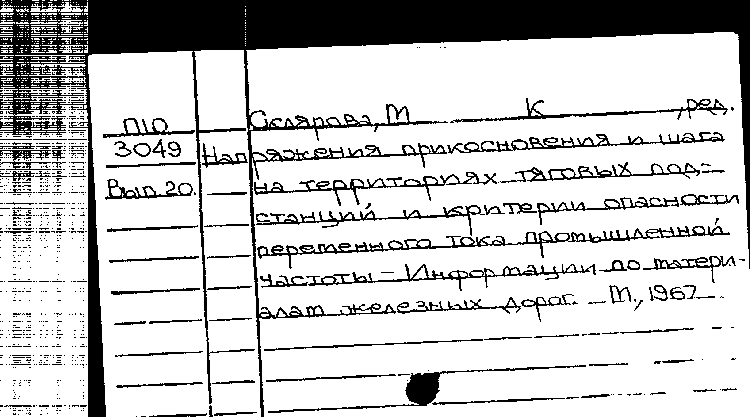 П10 Склярова, М К , ред.
3049 Напряжения прикосновения и шага
Вып 20. на территориях тяговых под-
станций и критерии опасности
переменного тока промышленной
частоты - Информации по матери-
алам железных дорог. М., 1967